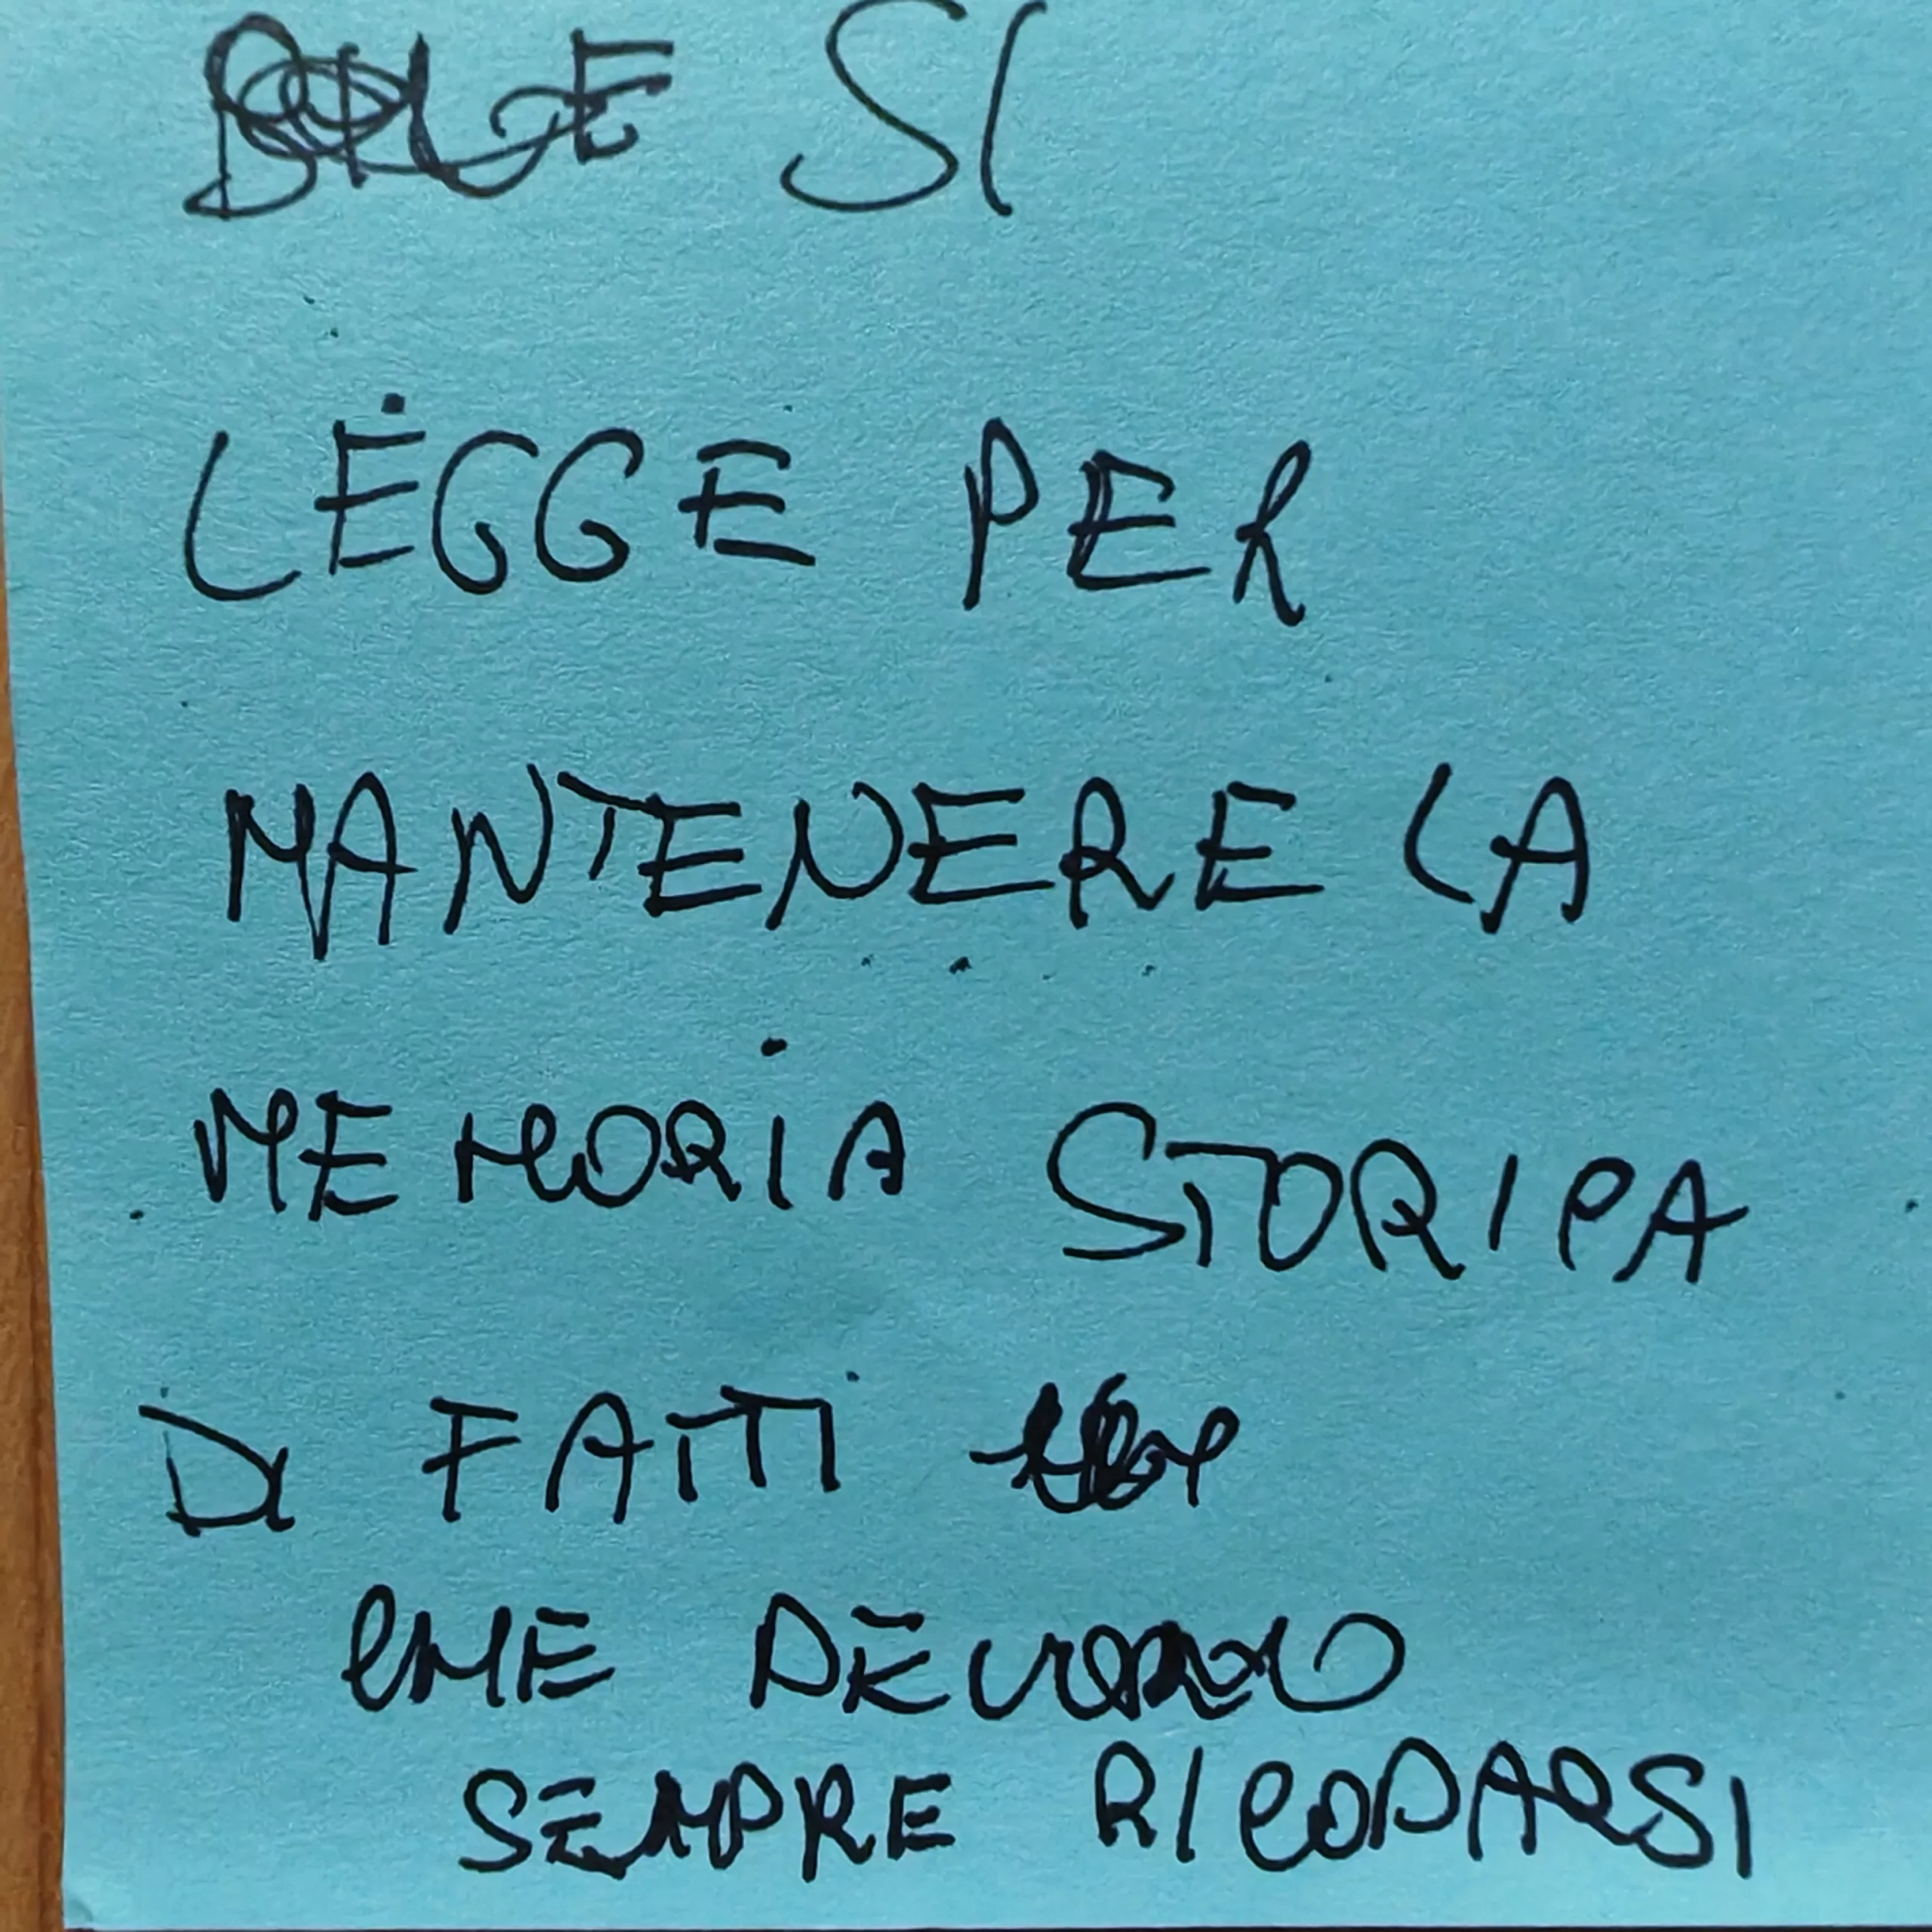 SI
LEGGE PER
MANTENERE LA
MEMORIA STORICA
DI FATTI
CHE DEVONO
SEMPRE RICODARSI